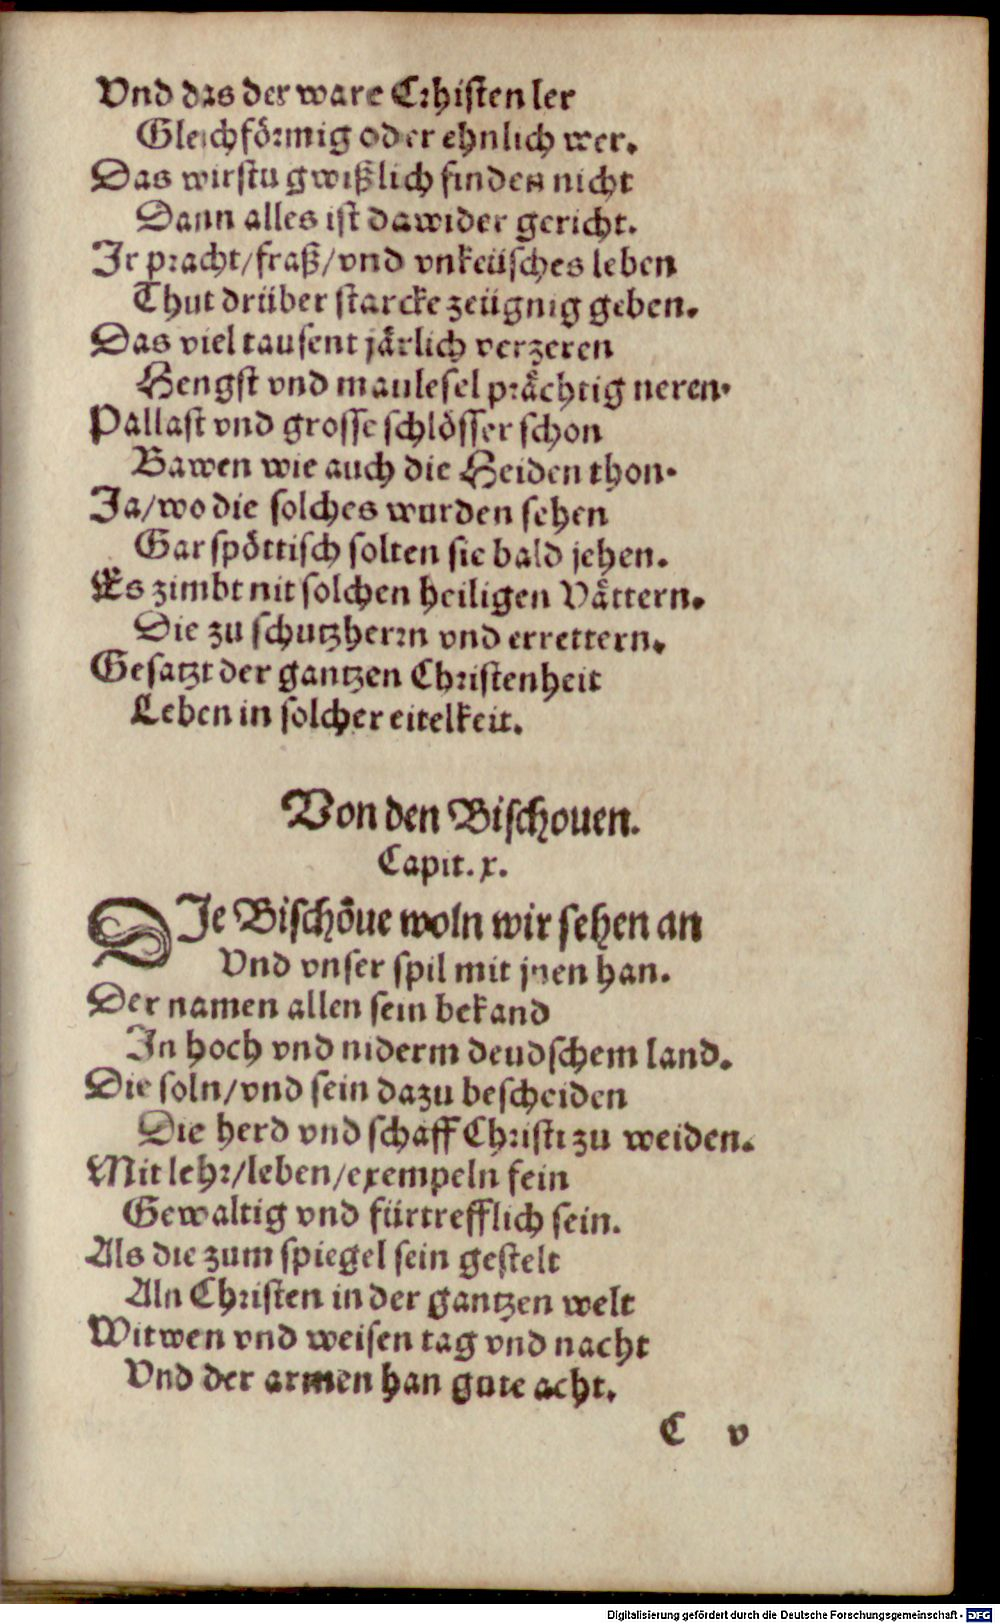 Vnd das der ware Crhisten ler
Gleichförmig oder ehnlich wer.
Das wirstu gwißlich finden nicht
Dann alles ist dawider gericht.
Jr pracht/fraß/vnd vnkeüsches leben
Thut drüber starcke zeügnig geben.
Das viel tausent järlich verzeren
Hengst vnd maulesel prächtig neren.
Pallast vnd grosse schlösser schon
Bawen wie auch die Heiden thon.
Ja/wo die solches wurden sehen
Gar spöttisch solten sie bald jehen.
Es zimbt nit solchen heiligen Vättern.
Die zu schutzherrn vnd errettern.
Gesatzt der gantzen Christenheit
Leben in solcher eitelkeit.
Von den Bischouen.
Capit. x.
DJe Bischöue woln wir sehen an
Vnd vnser spil mit jnen han.
Der namen allen sein bekand
Jn hoch vnd niderm deudschem land.
Die soln/vnd sein dazu bescheiden
Die herd vnd schaff Christi zu weiden.
Mit lehr/leben/exempeln fein
Gewaltig vnd fürtrefflich sein.
Als die zum spiegel sein gestelt
Aln Christen in der gantzen welt
Witwen vnd weisen tag vnd nacht
Vnd der armen han gute acht.
C v
Digitalisierung gefördert durch die Deutsche Forschungsgemeinschaft - DFG